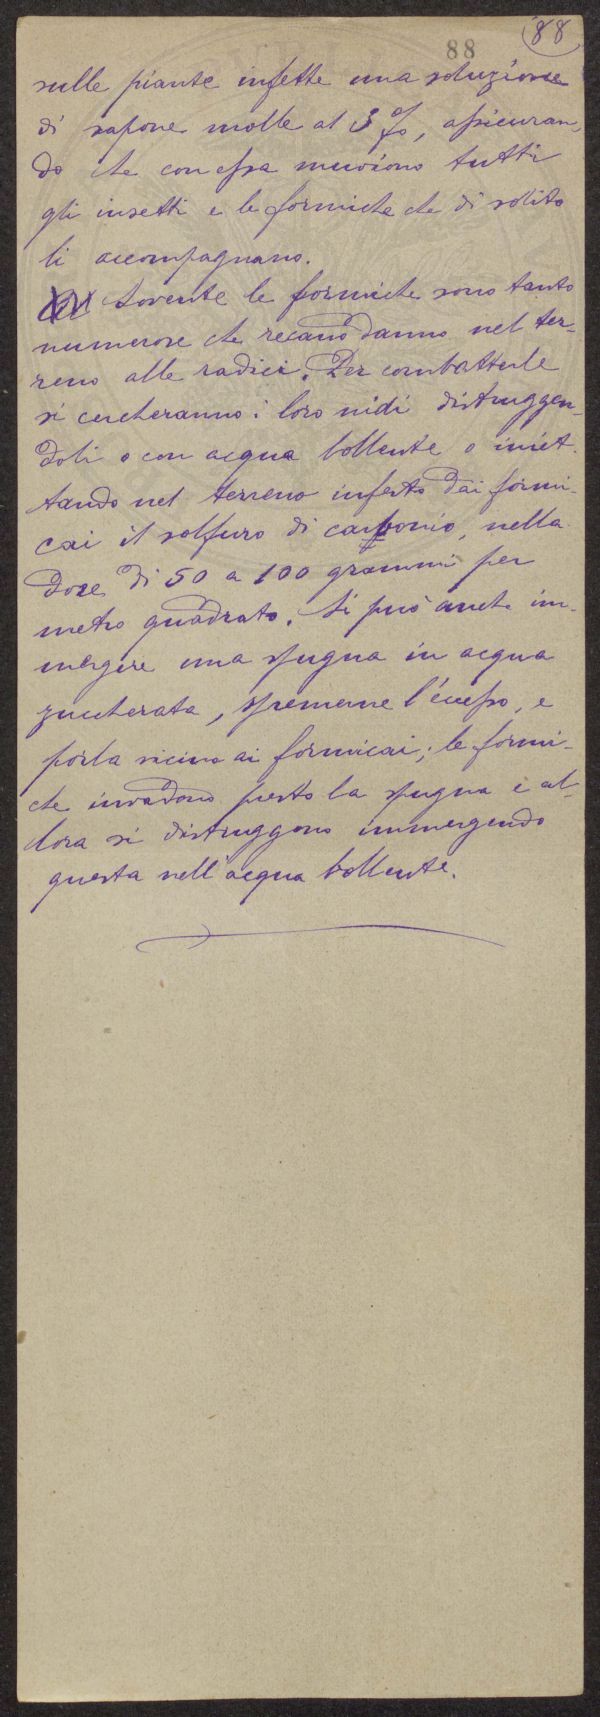 88
88
sulle piante infette una soluzione
di sapone molle al 3 %, assicuran-
do che con essa muoiono tutti
gli insetti e le formiche che di solito
li accompagnano.
Sovente le formiche sono tanto
numerose che recano danno nel ter-
reno alle radici. Per combatterle
si cercheranno i loro nidi distruggen-
doli o con acqua bollente o iniet-
tando nel terreno infesto dai formi-
cai il solfuro di carbonio, nella
dose di 50 a 100 grammi per
metro quadrato. Si può anche im-
mergere una spugna in acqua
zuccherata, spremerne l'eccesso, e
porla vicino ai formicai; le formi-
che invadono presto la spugna e al-
lora si distruggono immergendo
questa nell'acqua bollente.